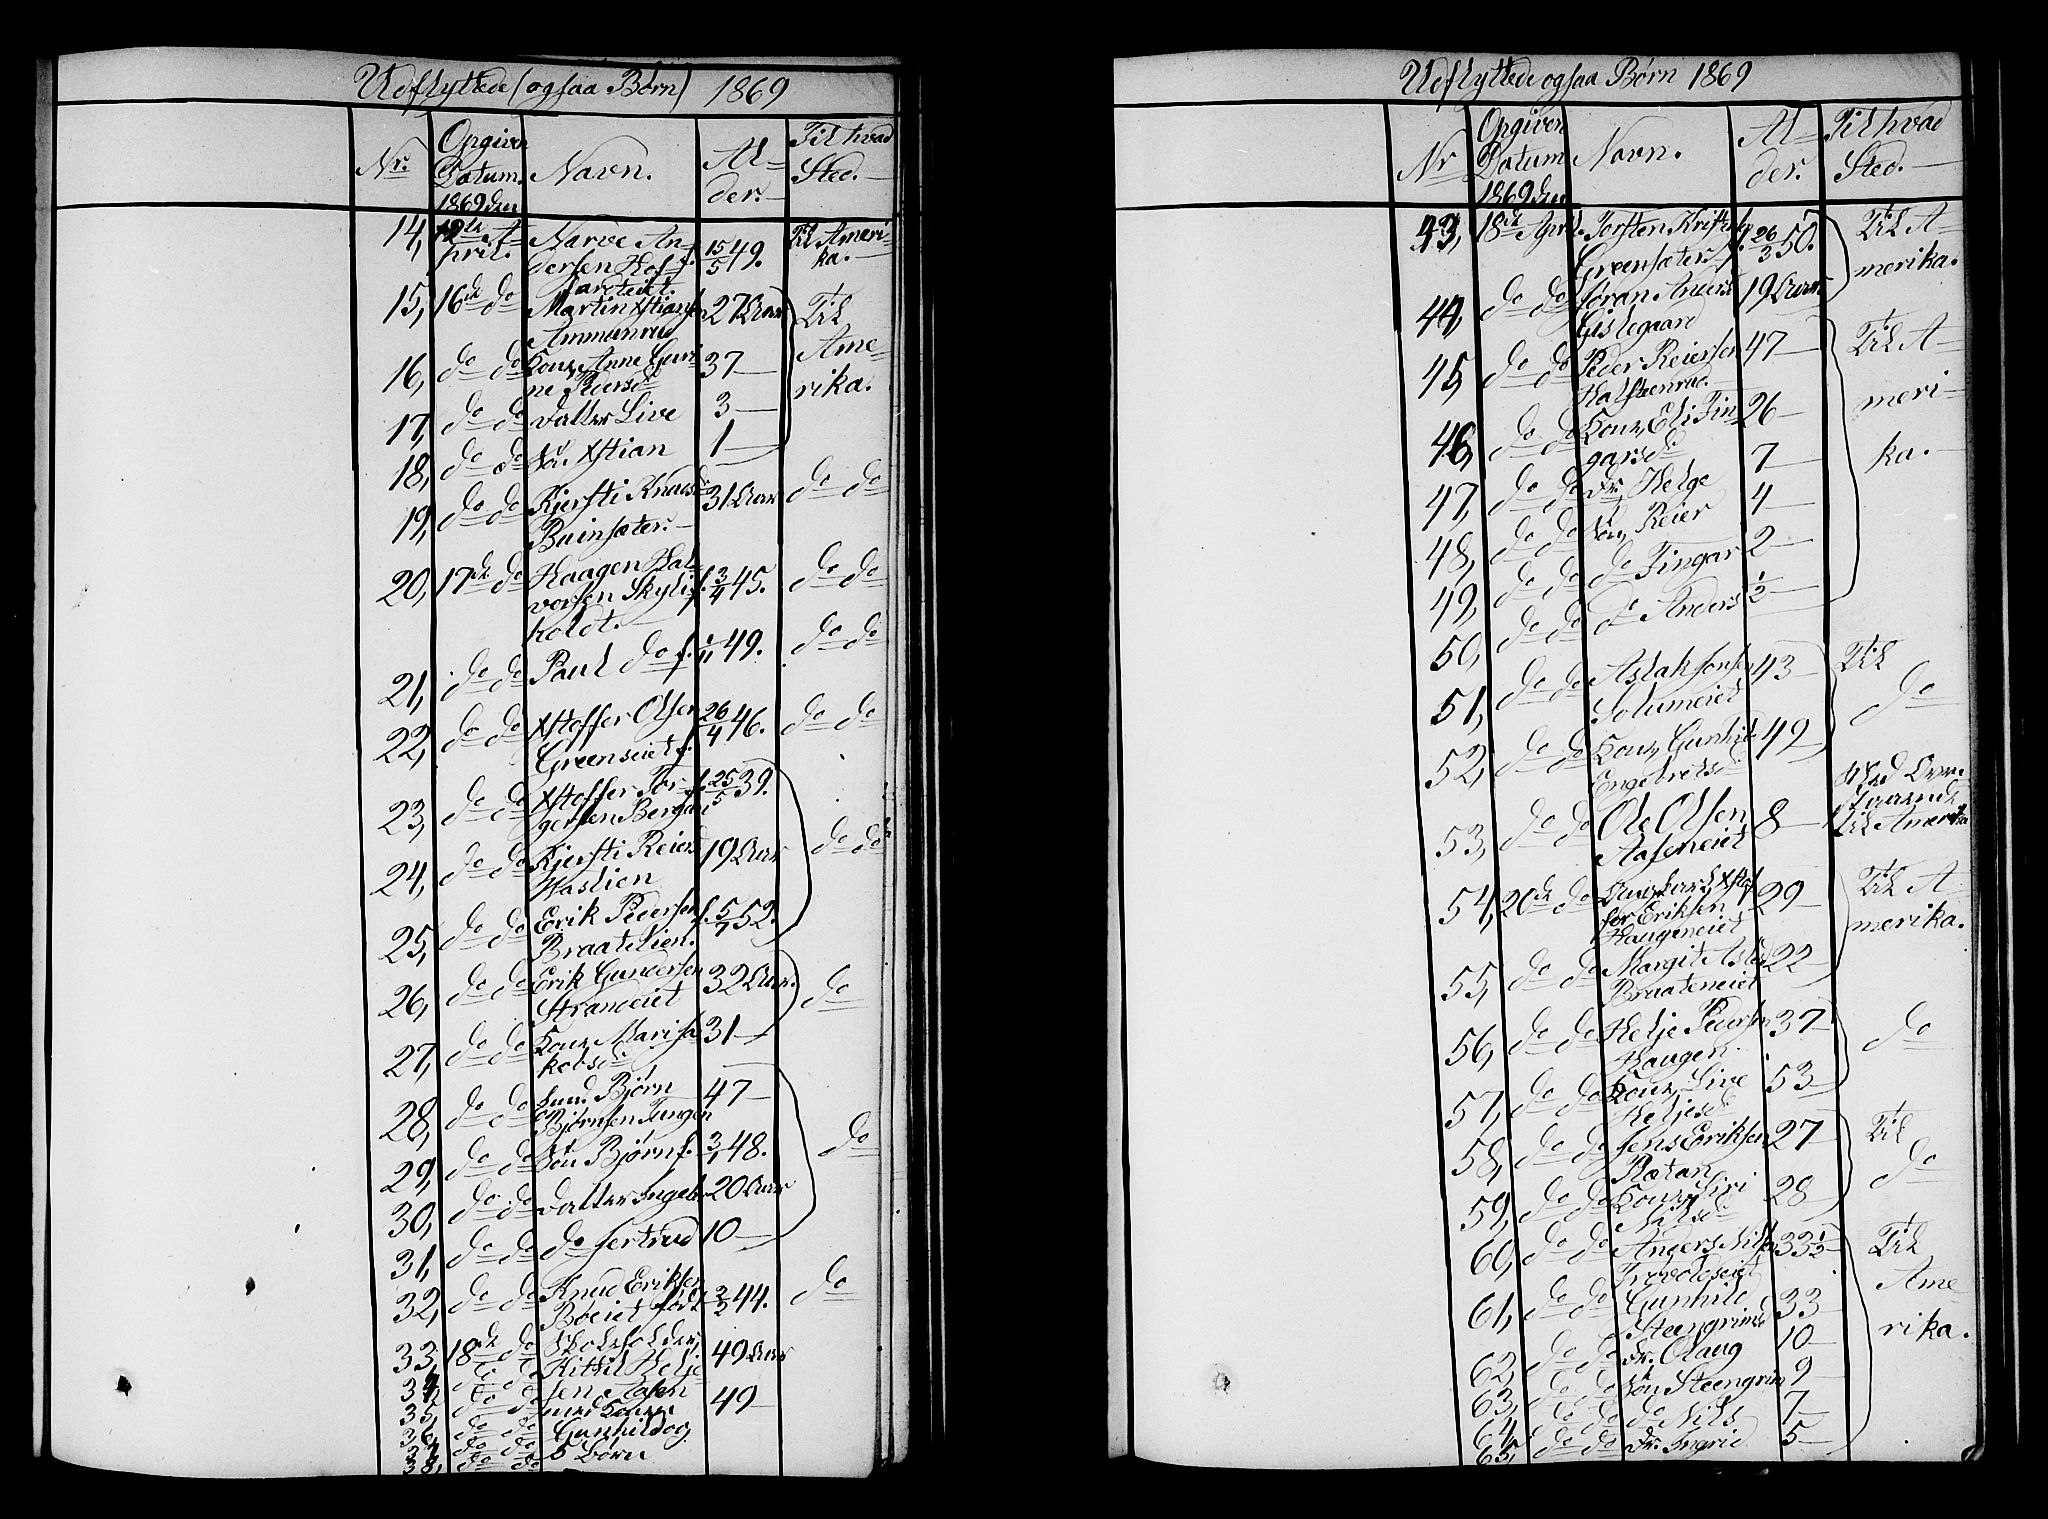 Udflyttede (ogsaa Børn) 1869
Nr. Opgiven Datum. 1869 den Navn. Alder. Til hvad Sted.
14, April. Narve Andersen Hof f. 15/5 49. Til Amerika.
15, 16de do Martin Xstians Ammunrud 27 Aar Til Amerika.
16, do do Kone Anne Gurine 37 —
17, do do Datter Live 3 —
18, do do Xstian 1 —
19, do do Kjersti Knudsd 31 Aar do do
Buinsæter.
20, 17de do Haagen Halvorsen f. 3/4 45. do do
koldt.
21, do do Paul do f. 1/11 49. do do
22, do do Xstoffer Olsen 26/4 46. do do
Greenseiet f.
23, do do Xstoffer Torgersen f. 25/5 39.
24, do do Kjersti Reiersd 19 Aar do do
Haslien
25, do do Erik Pedersen f. 5/7 52.
Braatelien.
26, do do Erik Gundersen 32 Aar. do
Strandeiet
27, do do Kone Mari Jakobsd 31 —
28, do do Bjørn 47 —
Bjørnsen Tungen
29, do do Søn Bjørn f. 3/1 48. do
30, do do Datter Ingebor 20 Aar
31, do do do Jertrud 10 —
32, do do Knud Eriksen 44. do
Bøeiet født
33, 18de do Skoleholder 49 Aar
34, do do Kittil Heljesen
35, do do med Konen 49 —
36, do do Gunhild og
37, do do 5 Børn
38, do do
Udflyttede ogsaa Børn 1869
Nr Opgiven Datum 1869 den Navn. Alder. Til hvad Sted.
43, 18de April. Torsten Kristens f. 26/3 50. Til Amerika.
Greensæter
44, do do Jøran Anders 19 Aar
Gislegaard
45, do do Peder Reiersen 47 — Til Amerika.
Halsteenrud.
46, do do Kone Eli Fingarsd 26 —
47, do do Dr. Helge 7 —
48, do do Søn Reier 4 —
49, do do do Fingar 2 —
50, do do do Anders 1/2 —
51, do do Aslak Jonsen 43 — Til do
Solumeiet
52, do do Kone Gunhild 49 —
Engebretsd
53, do do Ole Olsen 8 — Med Ovenstaaende til Amerika
Aaseneiet
54, 20de do Xstoffer Eriksen 29 — Til Amerika.
Haugeneiet
55, do do Margit Aslesd 22 —
Braateneiet
56, do do Helje Pedersen 37 — do
Haugen.
57, do do Kone Live 53 —
Heljesd
58, do do Jens Eriksen 27 — Til do
59, do do Kone Siri 28 —
Nilsd
60, do do Anders Nils 33 1/2 — Til Amerika.
61, do do Gunhild 33 —
Steengrimsd
62, do do Dr. Olaug 10 —
63, do do Søn Steengrim 9 —
64, do do do Nils 7 —
65, do do Dr. Ingrid 5 —